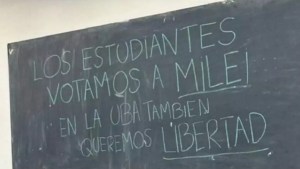 LOS ESTUDIANTES
VOTAMOS A MILEI
EN LA UBA TAMBIEN
QUEREMOS LIBERTAD